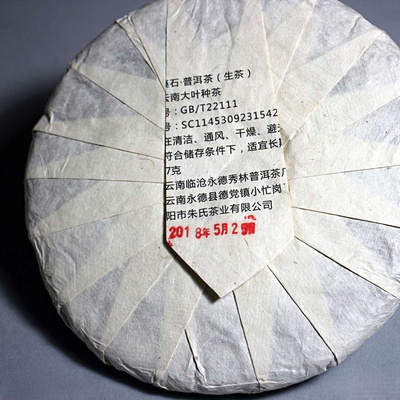 石·普洱茶（生茶）
云南大叶种茶
号：GB/T22111
号：SC1145309231542
清洁、通风、干燥、避
符合储存条件下，适宜长
7克
云南临沧永德秀林普洱茶厂
云南永德县德党镇小忙岗
阳市朱氏茶业有限公司
2018年5月2